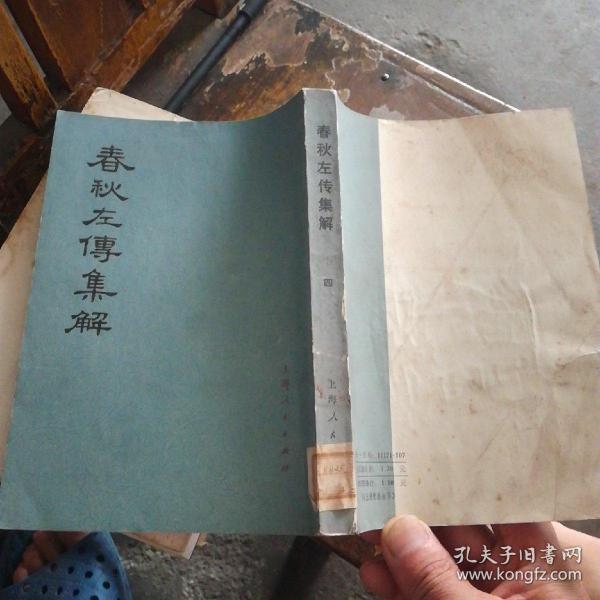 春秋左傳集解
上海人民出版社
春秋左传集解
四
上海人
11171·107
孔夫子旧书网
www.kongfz.com